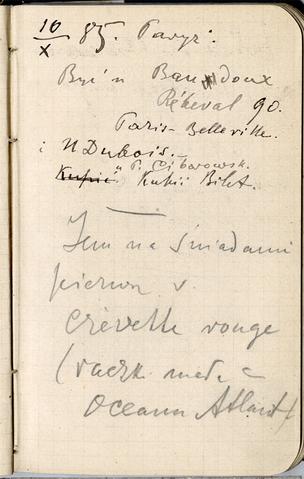 10/X 85. Paryż:
Być u Baudoux
Rébeval 90.
Paris-Belleville.
i u Dubois.-
" P. Ciborowsk.
Kupić Kupić Bilet.
Jem na śniadani
pierw
Crevette rouge
(raczk
Oceanu Atlant)